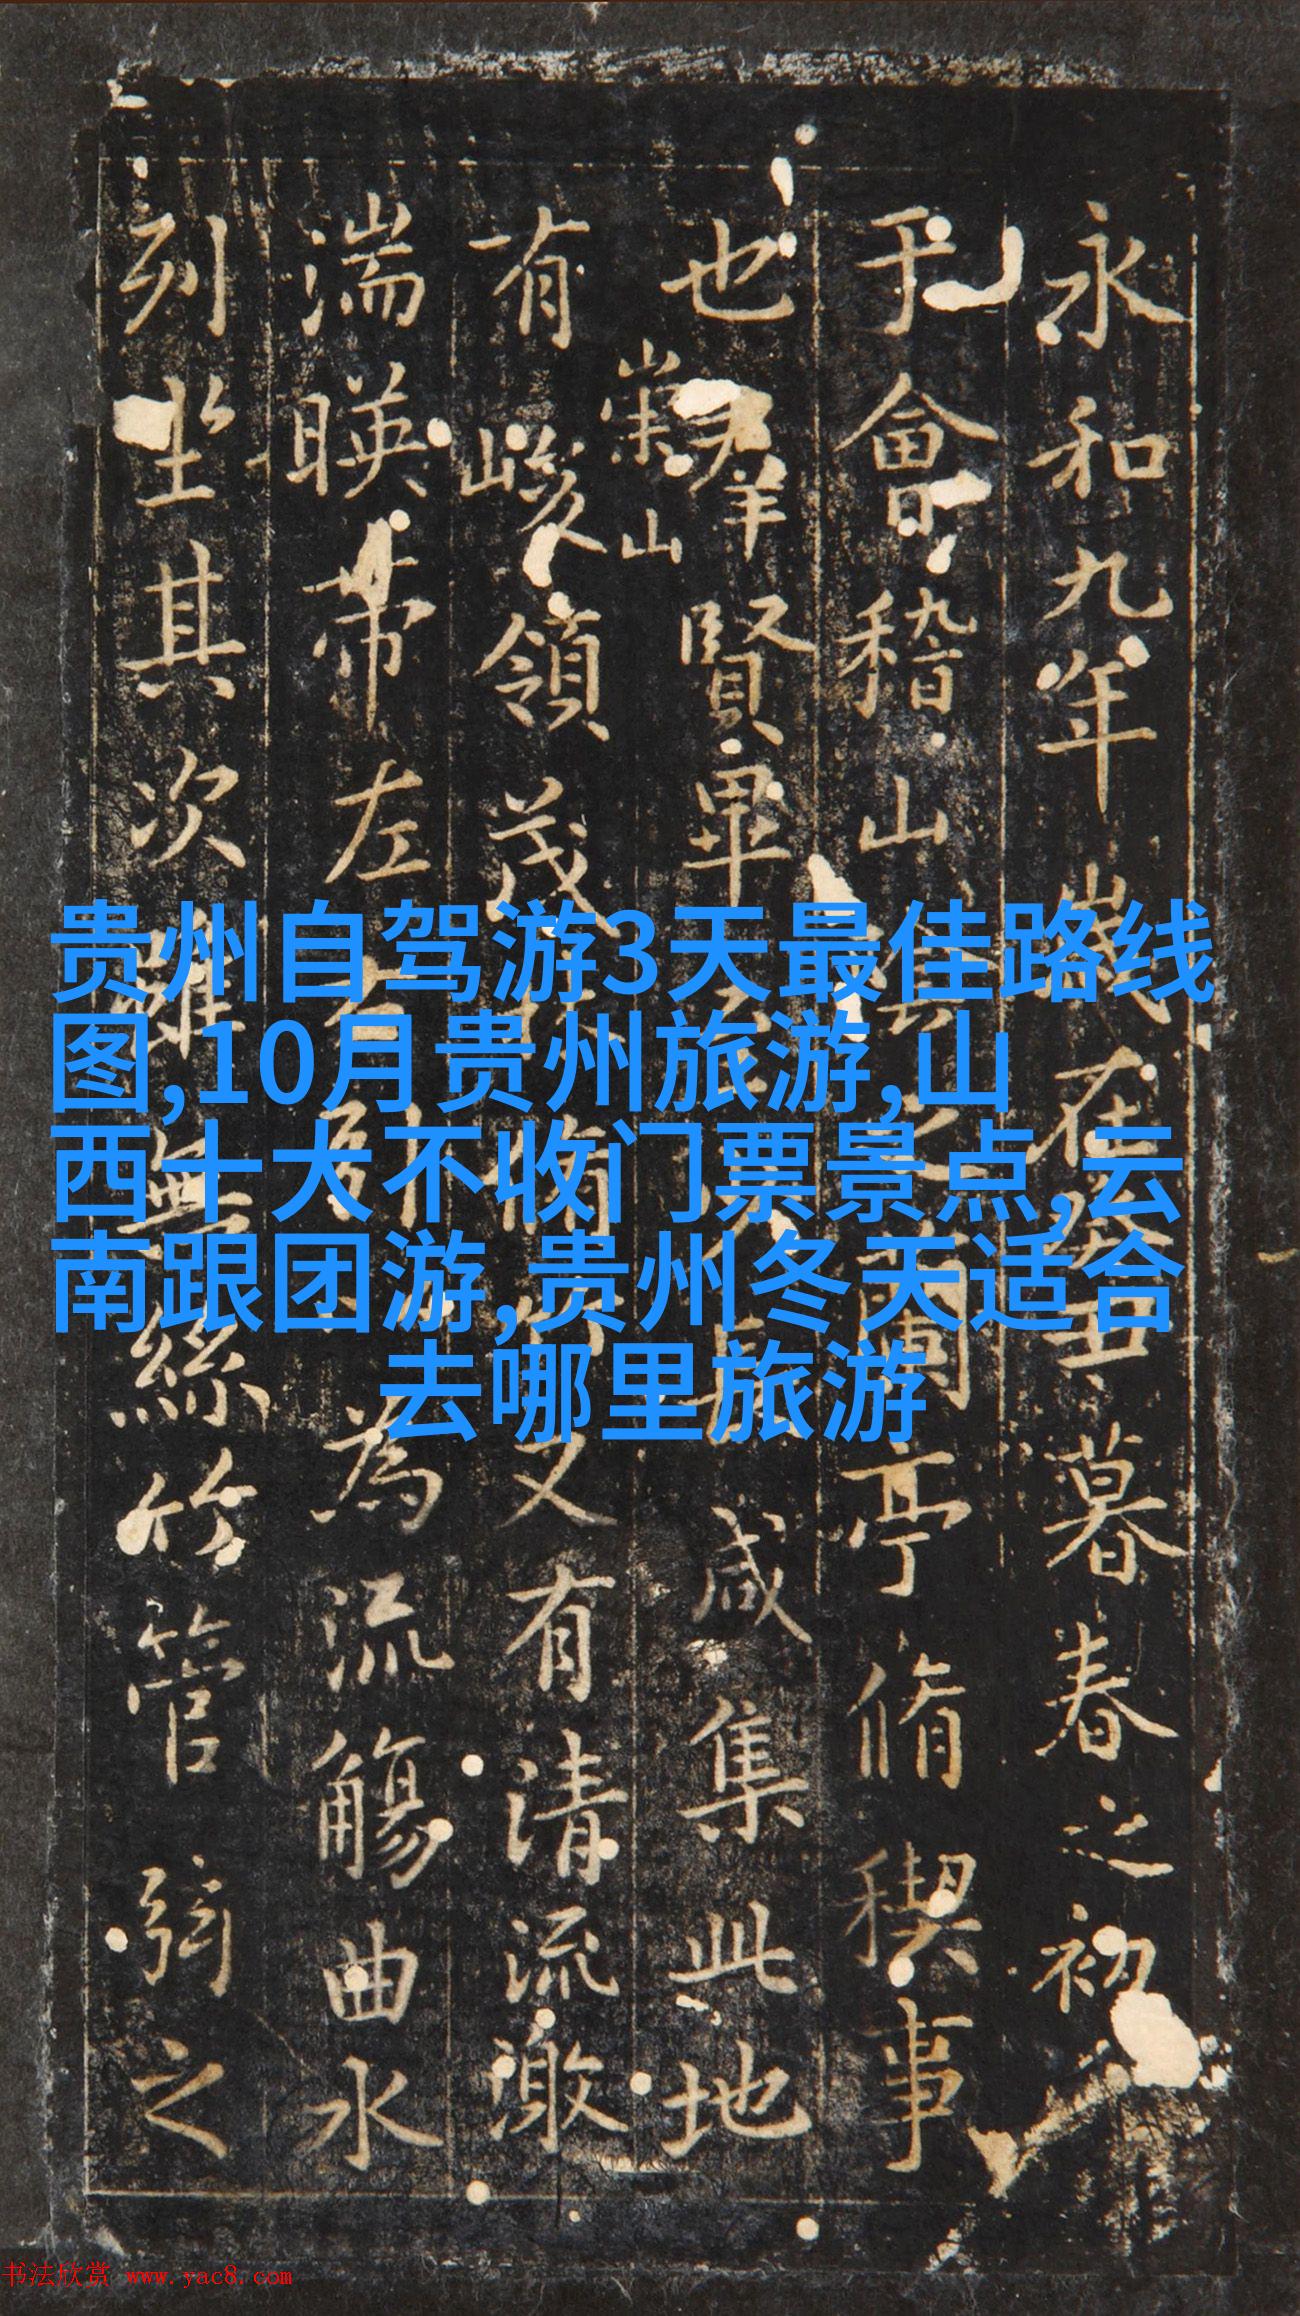 永和九年歲在癸丑暮春之初
于會稽山陰之蘭亭脩稧事
也羣賢畢至少長咸集此地
有崇山峻領茂林脩竹又有清流激
湍暎帶左右引以為流觴曲水
列坐其次雖無絲竹管弦之
贵州自驾游3天最佳路线
图,10月贵州旅游,山
西十大不收门票景点,云
南跟团游,贵州冬天适合
去哪里旅游
书法欣赏 www.yac8.com